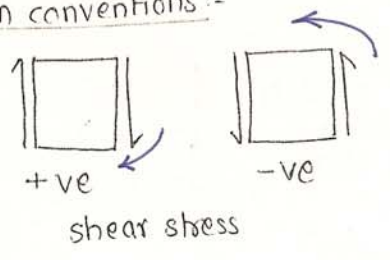 n conventions :-
+ve -ve
shear stress